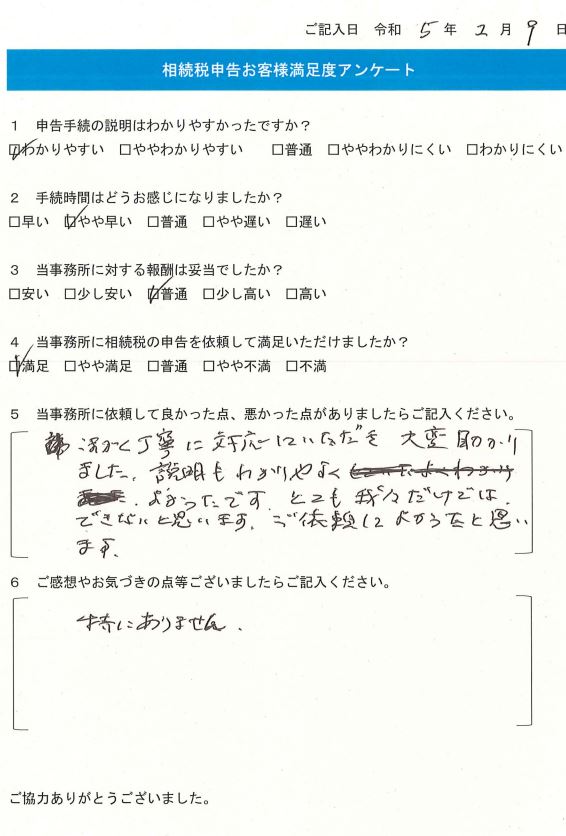 ご記入日 令和 5年 2月 9日
相続税申告お客様満足度アンケート
1 申告手続の説明はわかりやすかったですか？
☑わかりやすい □ややわかりやすい □普通 □ややわかりにくい □わかりにくい
2 手続時間はどうお感じになりましたか？
□早い ☑やや早い □普通 □やや遅い □遅い
3 当事務所に対する報酬は妥当でしたか？
□安い □少し安い ☑普通 □少し高い □高い
4 当事務所に相続税の申告を依頼して満足いただけましたか？
☑満足 □やや満足 □普通 □やや不満 □不満
5 当事務所に依頼して良かった点、悪かった点がありましたらご記入ください。
丁寧に対応していただき 大変助かり
ました。説明もわかりやすく
よかったです。とても我々だけでは、
できないと思います。ご依頼してよかったと思い
ます。
6 ご感想やお気づきの点等ございましたらご記入ください。
特にありません。
ご協力ありがとうございました。